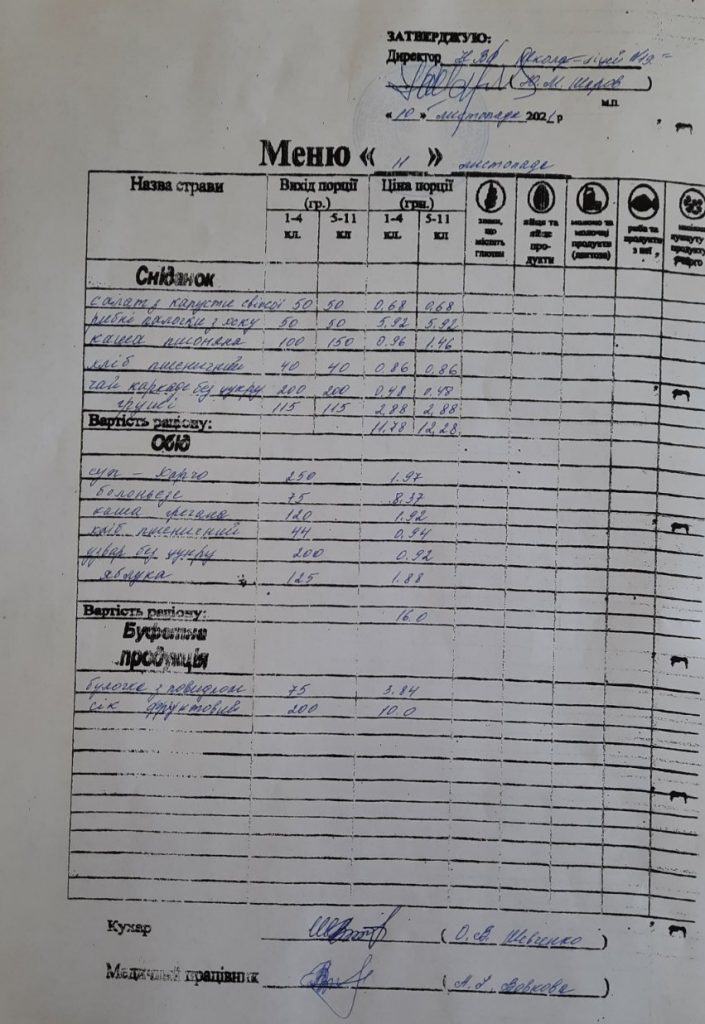 ЗАТВЕРДЖУЮ:
Директор НВК "Школа-ліцей №19"
(Ю.М. Шаров)
М.П.
«10» листопада 2021 р
Меню « 11 » листопада
Назва страви Вихід порції (гр.) Ціна порції (грн.)
1-4 кл. 5-11 кл 1-4 кл. 5-11 кл
злаки, що містять глютен
яйце та яйце продукти
молоко та молочні продукти (лактоза)
риба та продукти з неї
Сніданок
салат з капусти свіжої 50 50 0,68 0,68
рибні палочки з хеку 50 50 5.92 5.92
каша пшоняна 100 150 0.96 1.46
хліб пшеничний 40 40 0,86 0,86
чай каркаде без цукру 200 200 0,48 0.48
груші 115 115 2,88 2,88
Вартість раціону: 11.78 12,28
Обід
суп - харчо 250 1.97
болоньєзе 75 8.37
каша гречана 120 1.92
хліб пшеничний 44 0.94
узвар без цукру 200 0.92
яблука 125 1.88
Вартість раціону: 16.0
Буфетна
продукція
булочка з повидлом 75 3.84
сік фруктовий 200 10.0
Кухар (О.В. Шевченко)
Медичний працівник (А.Г. Вовкова)